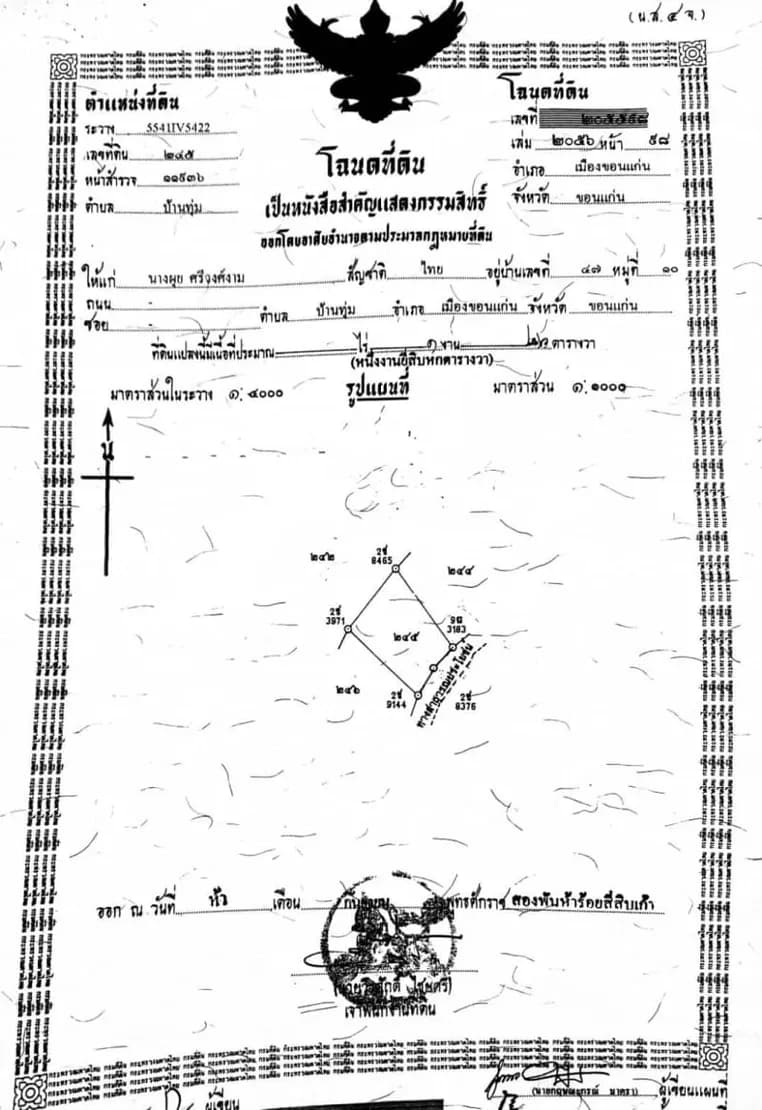 (น.ส.๔ จ.)
ตำแหน่งที่ดิน
ระวาง 5541IV5422
เลขที่ดิน ๒๔๕
หน้าสำรวจ ๑๑๕๓๖
ตำบล บ้านทุ่ม
โฉนดที่ดิน
เลขที่ ๒๐๕๕๙๘
เล่ม ๒๐๕๖ หน้า ๙๘
อำเภอ เมืองขอนแก่น
จังหวัด ขอนแก่น
โฉนดที่ดิน
เป็นหนังสือสำคัญแสดงกรรมสิทธิ์
ออกโดยอาศัยอำนาจตามประมวลกฎหมายที่ดิน
ให้แก่ นางผุย ศรีวงศ์งาม สัญชาติ ไทย อยู่บ้านเลขที่ ๔๗ หมู่ที่ ๑๐
ถนน -
ซอย - ตำบล บ้านทุ่ม อำเภอ เมืองขอนแก่น จังหวัด ขอนแก่น
ที่ดินแปลงนี้มีเนื้อที่ประมาณ ไร่ ๑ งาน ๒๖ ตารางวา
(หนึ่งงานยี่สิบหกตารางวา)
มาตราส่วนในระวาง ๑:๔๐๐๐ รูปแผนที่ มาตราส่วน ๑:๑๐๐๐
น
๒๔๒
2ช
8465
๒๔๔
2ช
3971
9ฉ
3183
๒๔๕
๒๔๖
2ช
9144
ทางสาธารณประโยชน์
2ช
8376
ออก ณ วันที่ ห้า เดือน กันยายน พุทธศักราช สองพันห้าร้อยสี่สิบเก้า
เจ้าพนักงานที่ดิน
ผู้เขียน
ผู้เขียนแผนที่